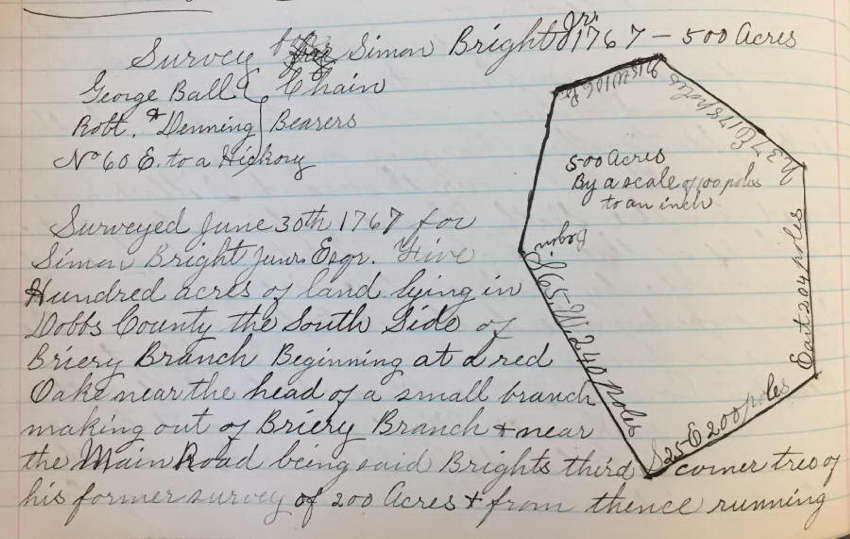 Survey by Simon Bright Jr. 1767 — 500 Acres
George Ball } Chain
Robt. & Denning } Bearers
No 60 E. to a Hickory
Surveyed June 30th 1767 for
Simon Bright Junr. Esqr. Five
Hundred acres of land lying in
Dobbs County the South Side of
Briery Branch Beginning at a red
Oake near the head of a small branch
making out of Briery Branch & near
the Main Road being said Brights third corner tree of
his former survey of 200 Acres & from thence running
N 37 E 178 poles
500 Acres
By a scale of 100 poles
to an inch
East 204 poles
S 25 E 200 poles
S 65 W 240 poles
Begun